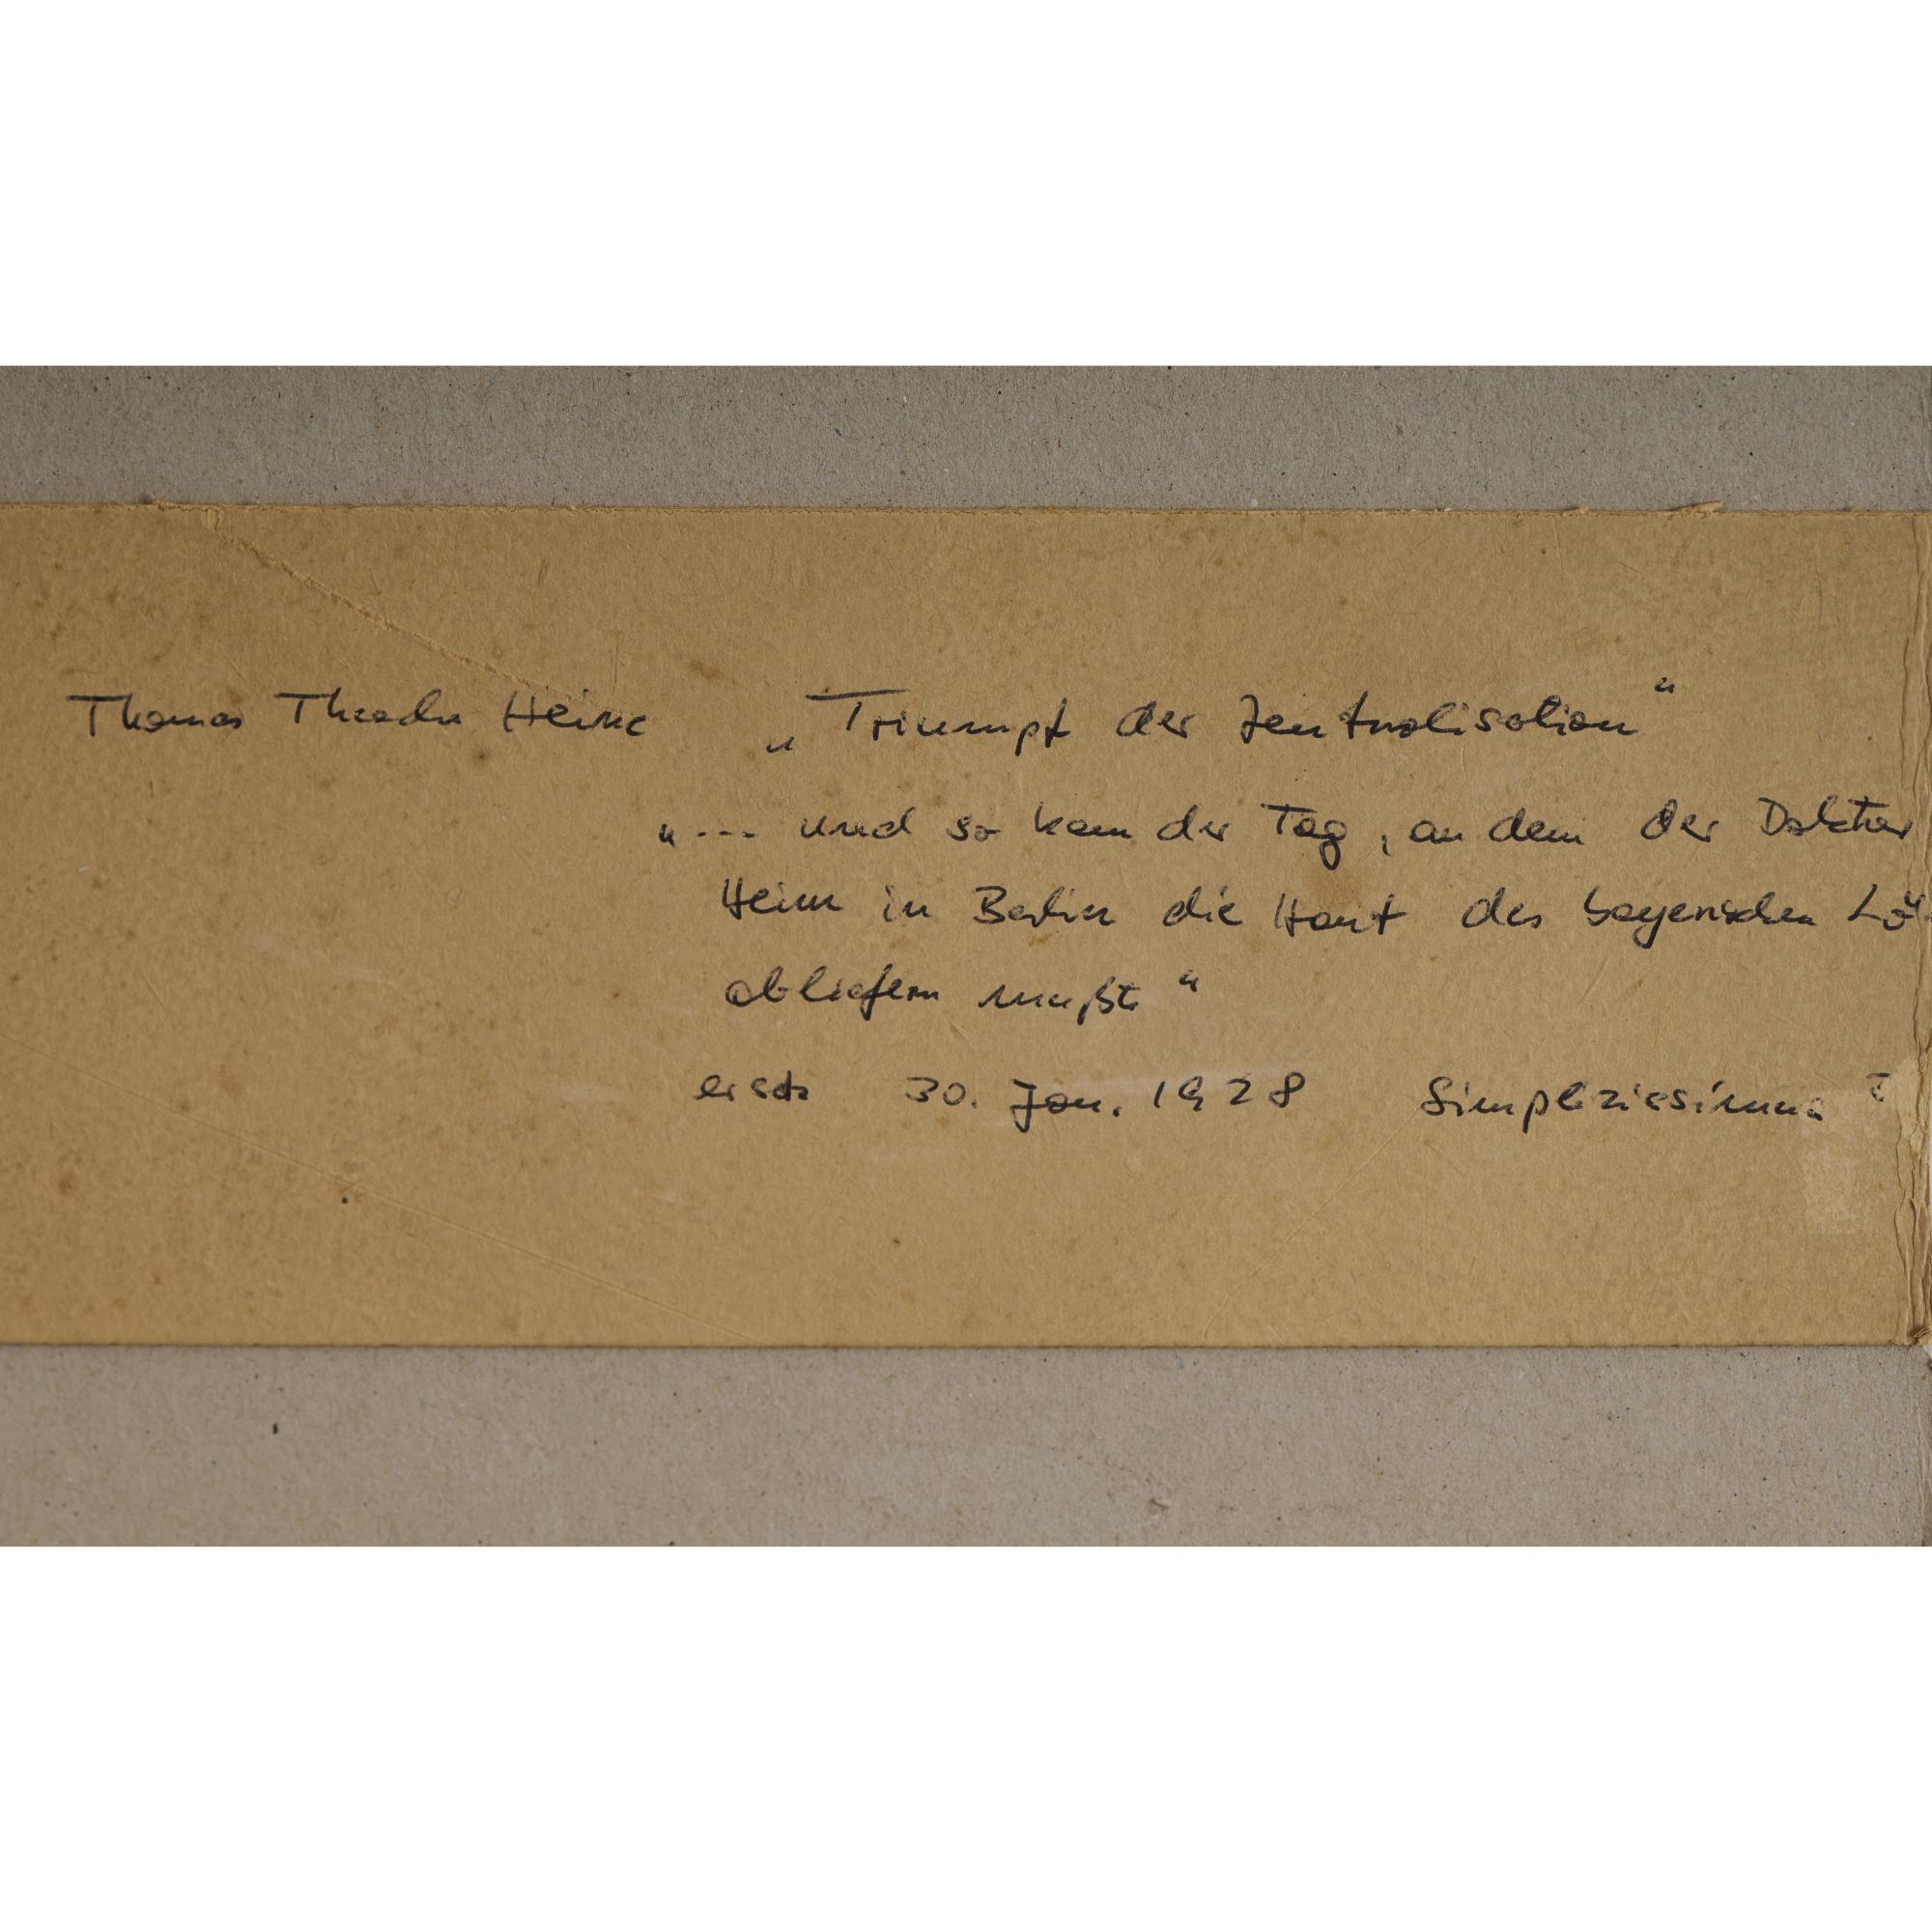 Thomas Theodor Heine „Triumpf der Zentralisation“
„... und so kam der Tag, an dem der Doktor
Heim in Berlin die Haut des bayerischen Lö
abliefern mußte“
ersch 30. Jan. 1928 Simplizissimus